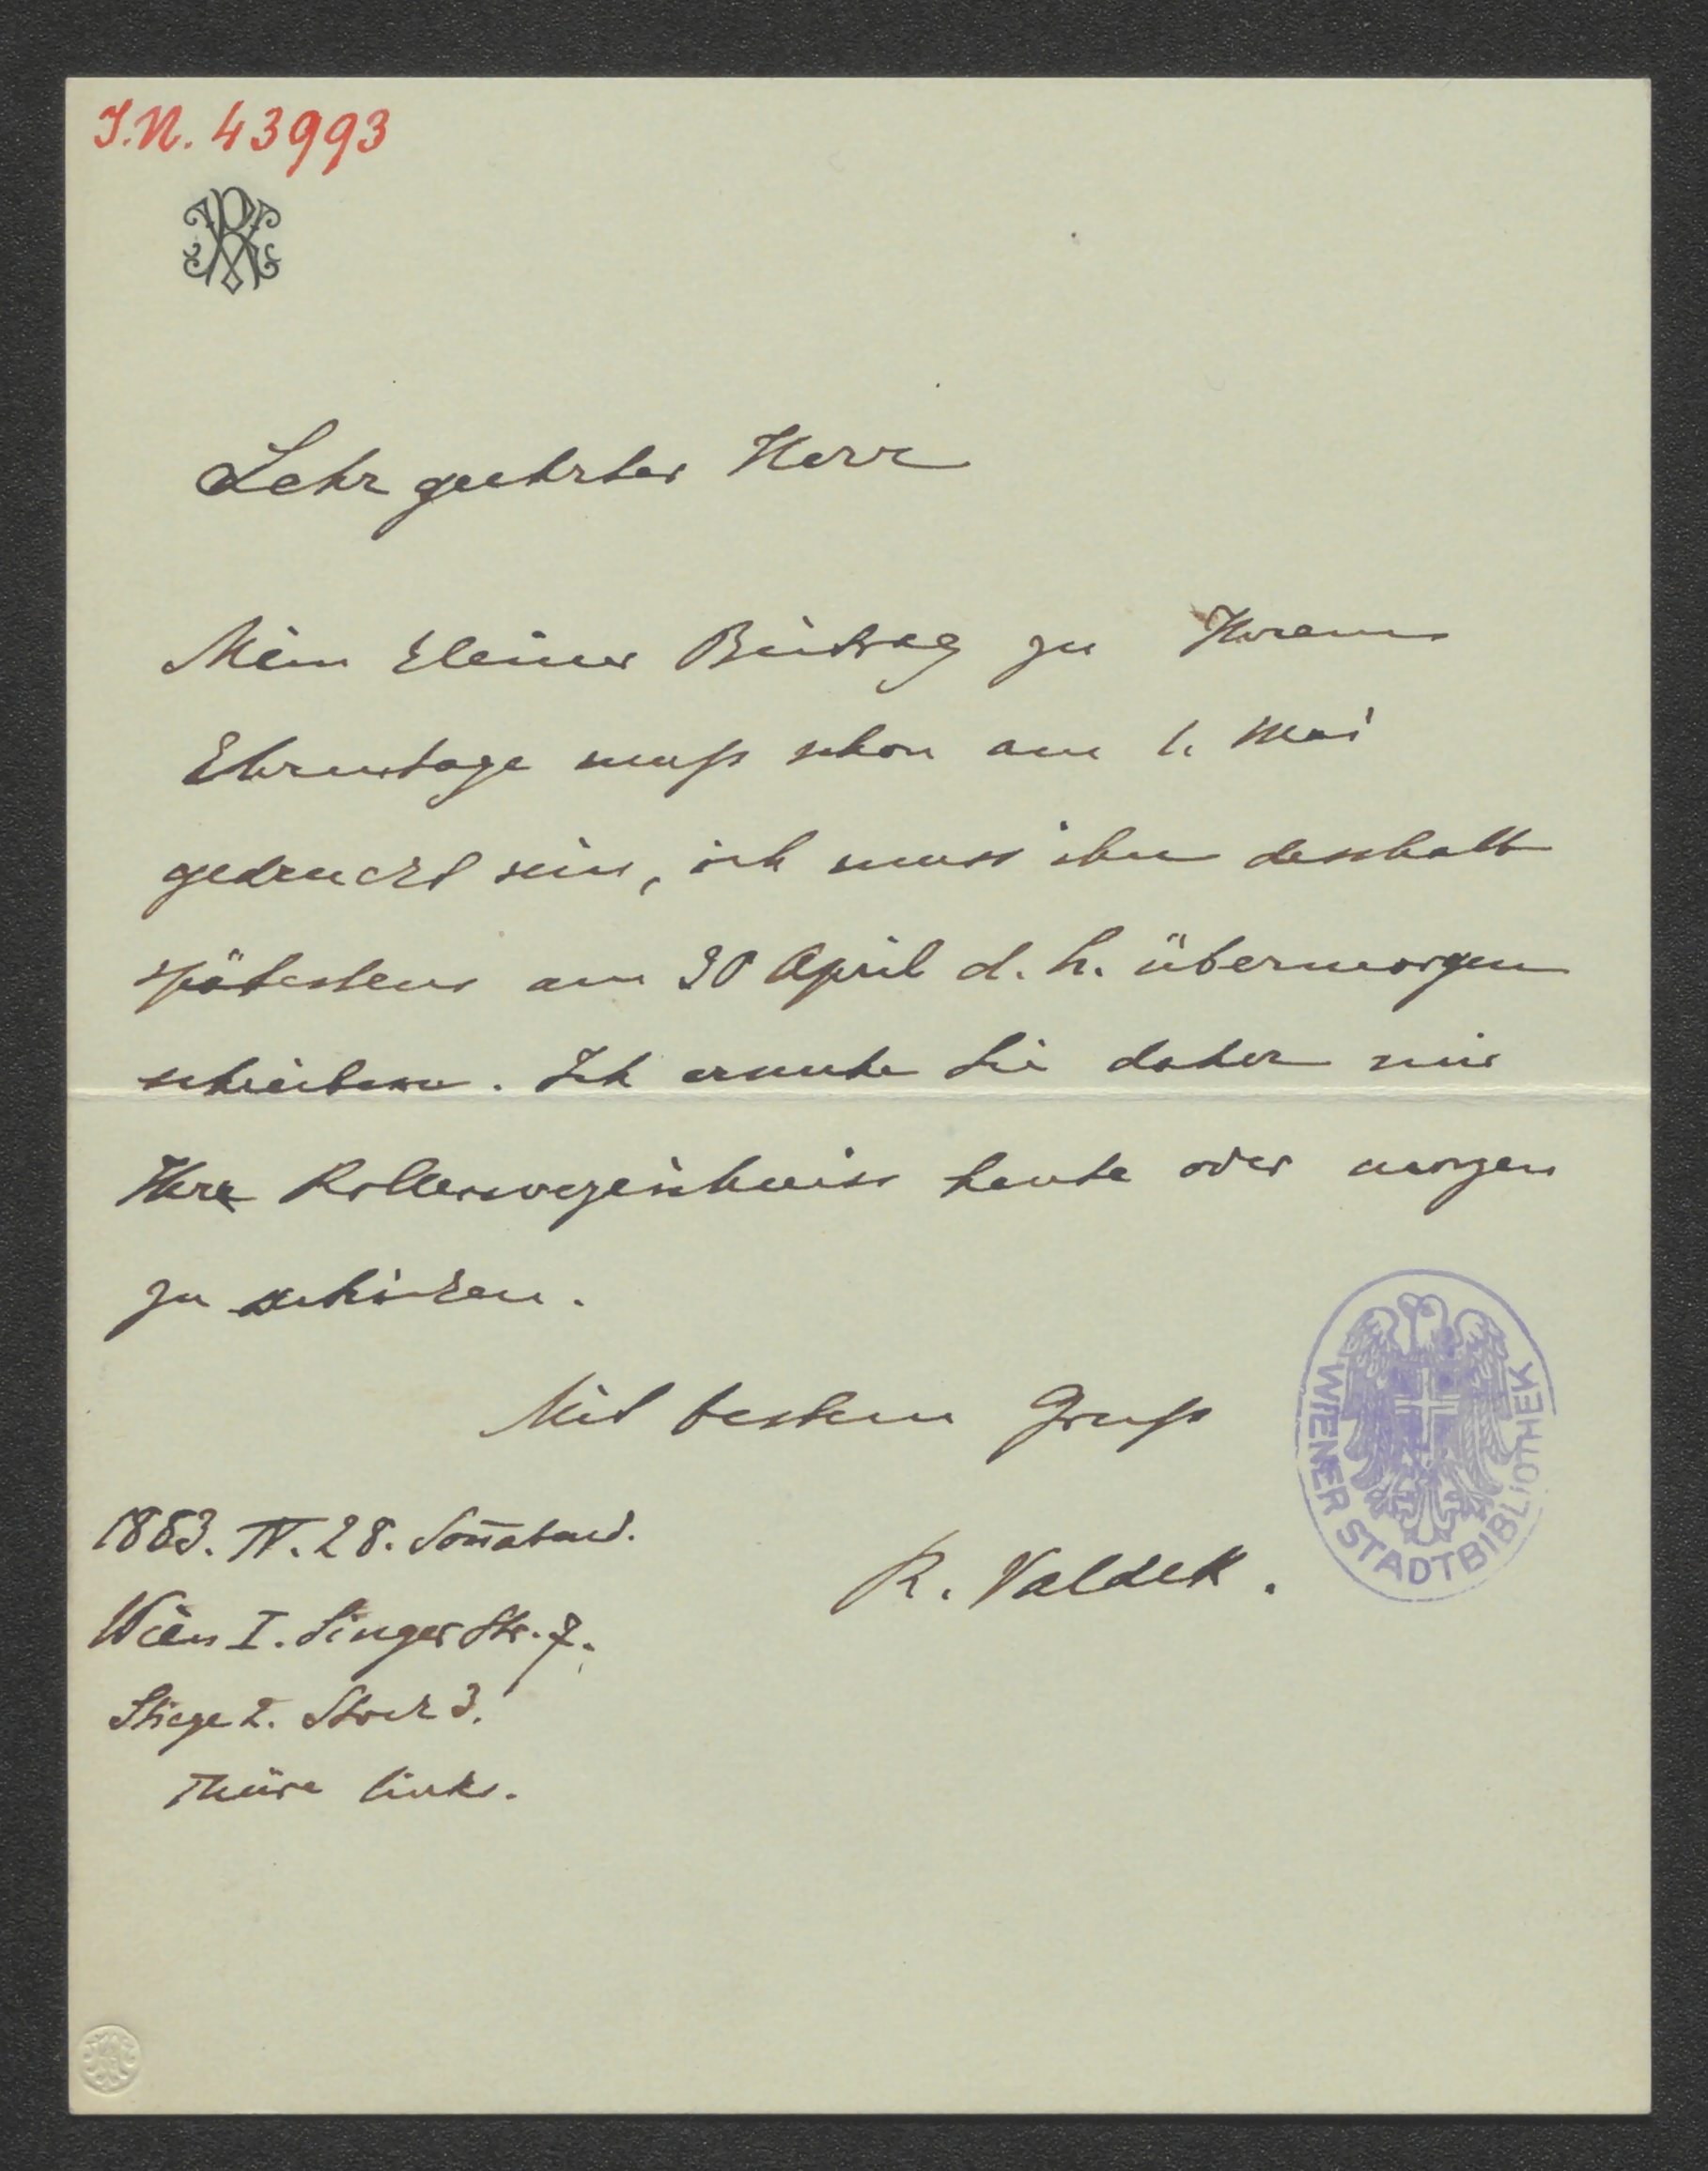 J.N. 43993
Sehr geehrter Herr
Mein kleiner Beitrag zu Ihrem
Ehrentage muß schon am 1. Mai
gedruckt sein, ich muss ihn desshalb
spätestens am 30 April d. h. übermorgen
schreiben. Ich ersuche Sie daher mir
Ihre Rollenverzeichniss heute oder morgen
zu schicken.
Mit bestem Gruß
1883. IV. 28. Son̄abend.
R. Valdek.
Wien I. Singer Str. 7.
Stiege 2. Stock 3.
Thüre links.
WIENER STADTBIBLIOTHEK